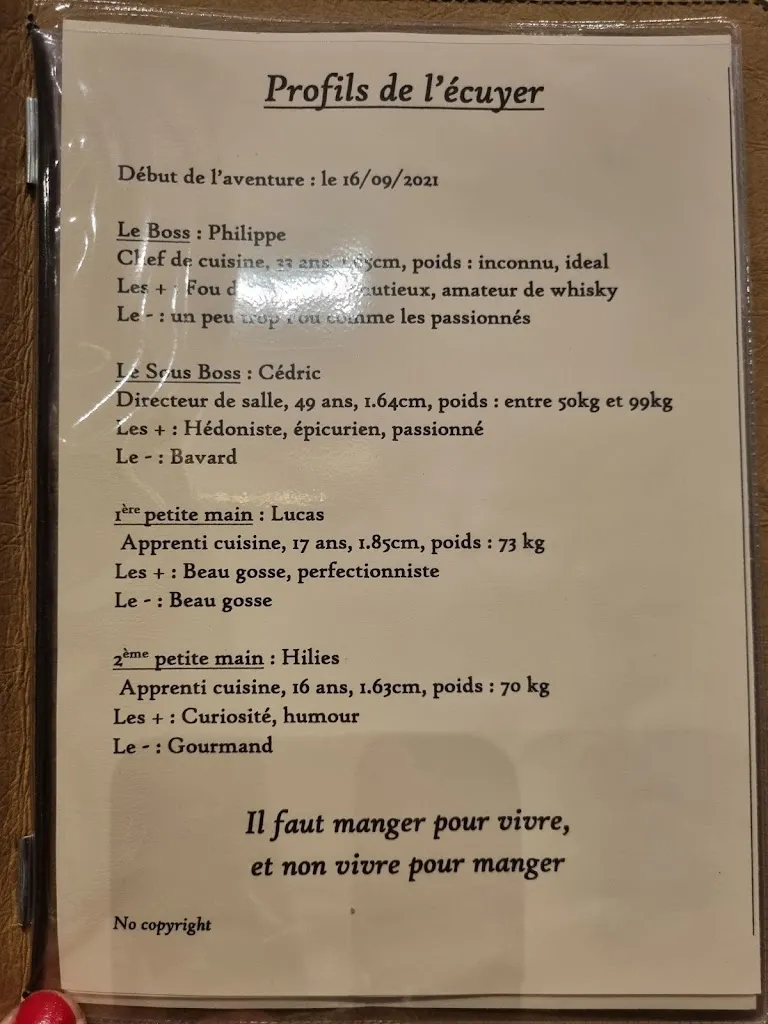 Profils de l'écuyer
Début de l'aventure : le 16/09/2021
Le Boss : Philippe
Chef de cuisine, 33 ans, cm, poids : inconnu, ideal
Les + : Fou amateur de whisky
Le - : un peu trop fou comme les passionnés
Le Sous Boss : Cédric
Directeur de salle, 49 ans, 1.64cm, poids : entre 50kg et 99kg
Les + : Hédoniste, épicurien, passionné
Le - : Bavard
1ère petite main : Lucas
Apprenti cuisine, 17 ans, 1.85cm, poids : 73 kg
Les + : Beau gosse, perfectionniste
Le - : Beau gosse
2ème petite main : Hilies
Apprenti cuisine, 16 ans, 1.63cm, poids : 70 kg
Les + : Curiosité, humour
Le - : Gourmand
Il faut manger pour vivre,
et non vivre pour manger
No copyright